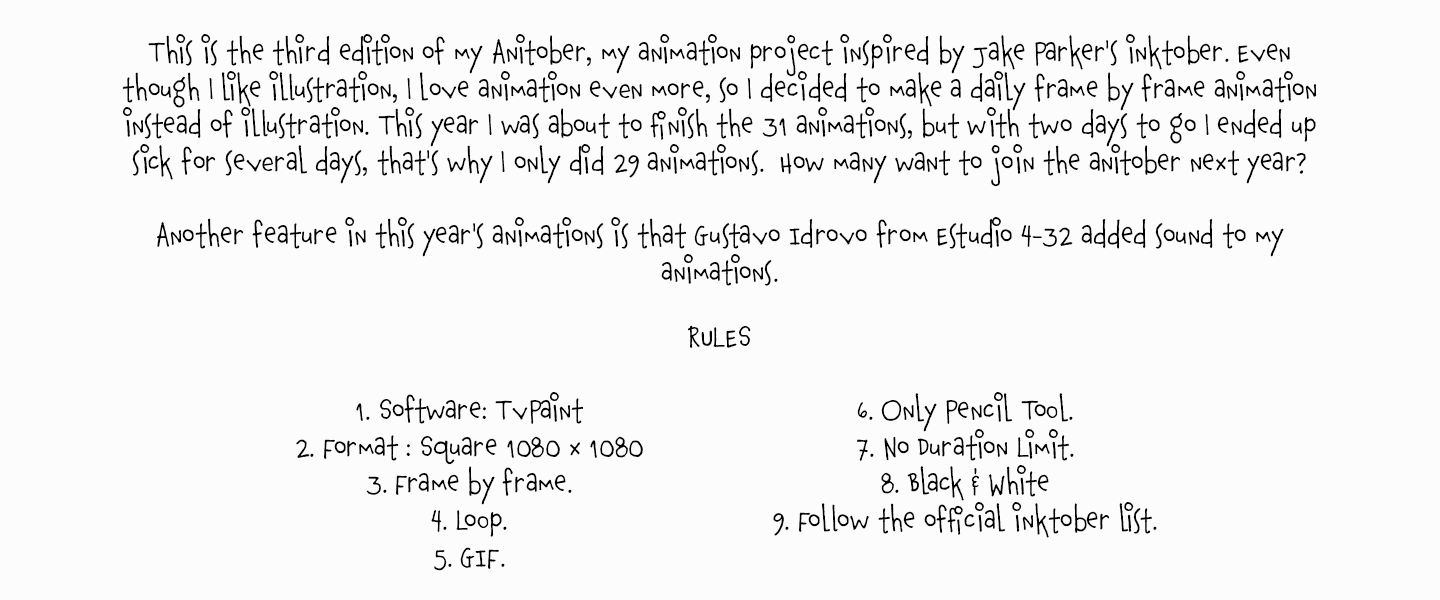 This is the third edition of my Anitober, my animation project inspired by Jake Parker's inktober. Even
though I like illustration, I love animation even more, so I decided to make a daily frame by frame animation
instead of illustration. This year I was about to finish the 31 animations, but with two days to go I ended up
sick for several days, that's why I only did 29 animations. How many want to join the anitober next year?
Another feature in this year's animations is that Gustavo Idrovo from Estudio 4-32 added sound to my
animations.
RULES
1. Software: TvPaint
2. Format : Square 1080 x 1080
3. Frame by frame.
4. Loop.
5. GIF.
6. Only Pencil Tool.
7. No Duration Limit.
8. Black & White
9. Follow the official inktober list.